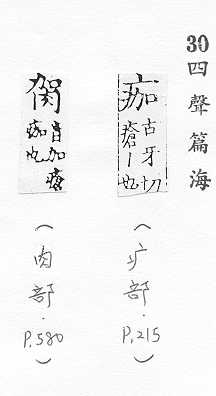 30四聲篇海
痂
古牙切
瘡丨也
(疒部.P.215)
音加瘡
痂也
(肉部.P.580)